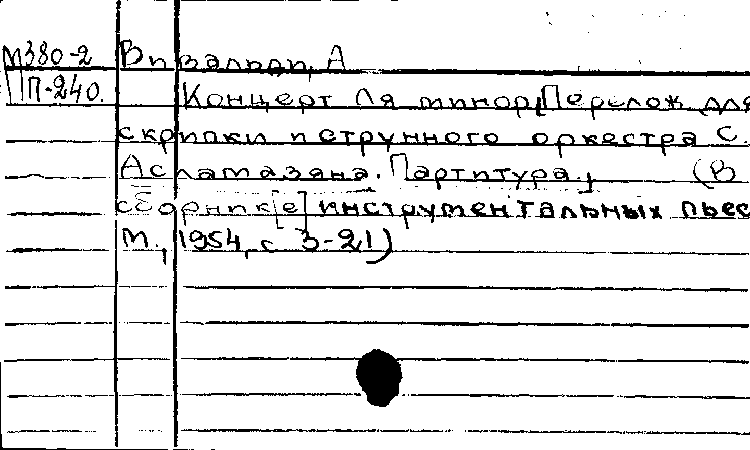 М380-2 Вивальди, А
П-240. Концерт Ля минор[Перелож для
скрипки и струнного оркестра С.
Асламазяна. Партитура.] (В
сборник[е] инструментальных пьес
М., 1954, с 3-21)